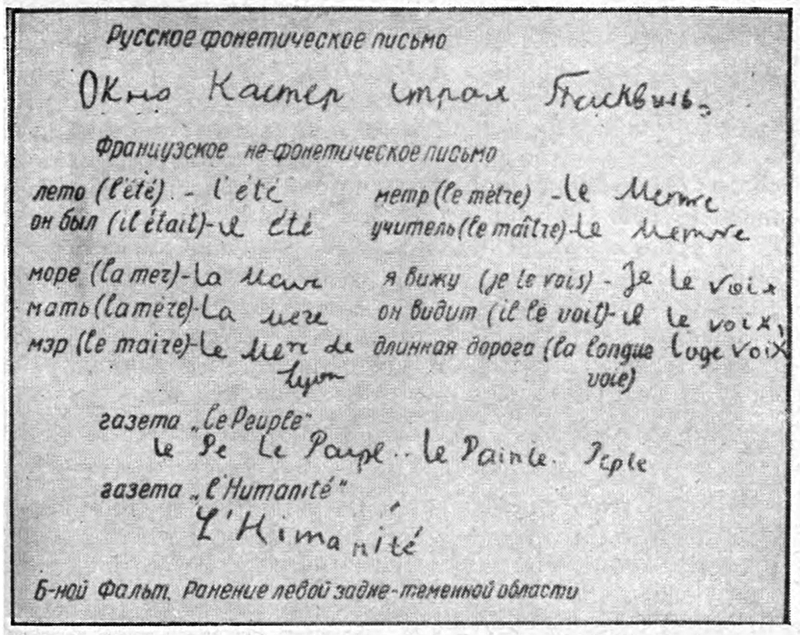 Русское фонетическое письмо
Окно Кастер страх
Французское не-фонетическое письмо
лето (l'été) - l'été метр (le mètre) - le Метте
он был (il était)-il été учитель (le maître)-le Метте
море (la mer)-la я вижу (je le vois) - Je le voix
мать (la mère)-la мere он видит (il lé voit)-il le voix,
мэр (le maire)-le Mer de длинная дорога (la longue loge voix
Lyon voie)
газета „Le Peuple"
le Pe le Paupl.. le Painle. Peple
газета „l'Humanité"
L'Himanité
Б-ной Фальт. Ранение левой задне-теменной области